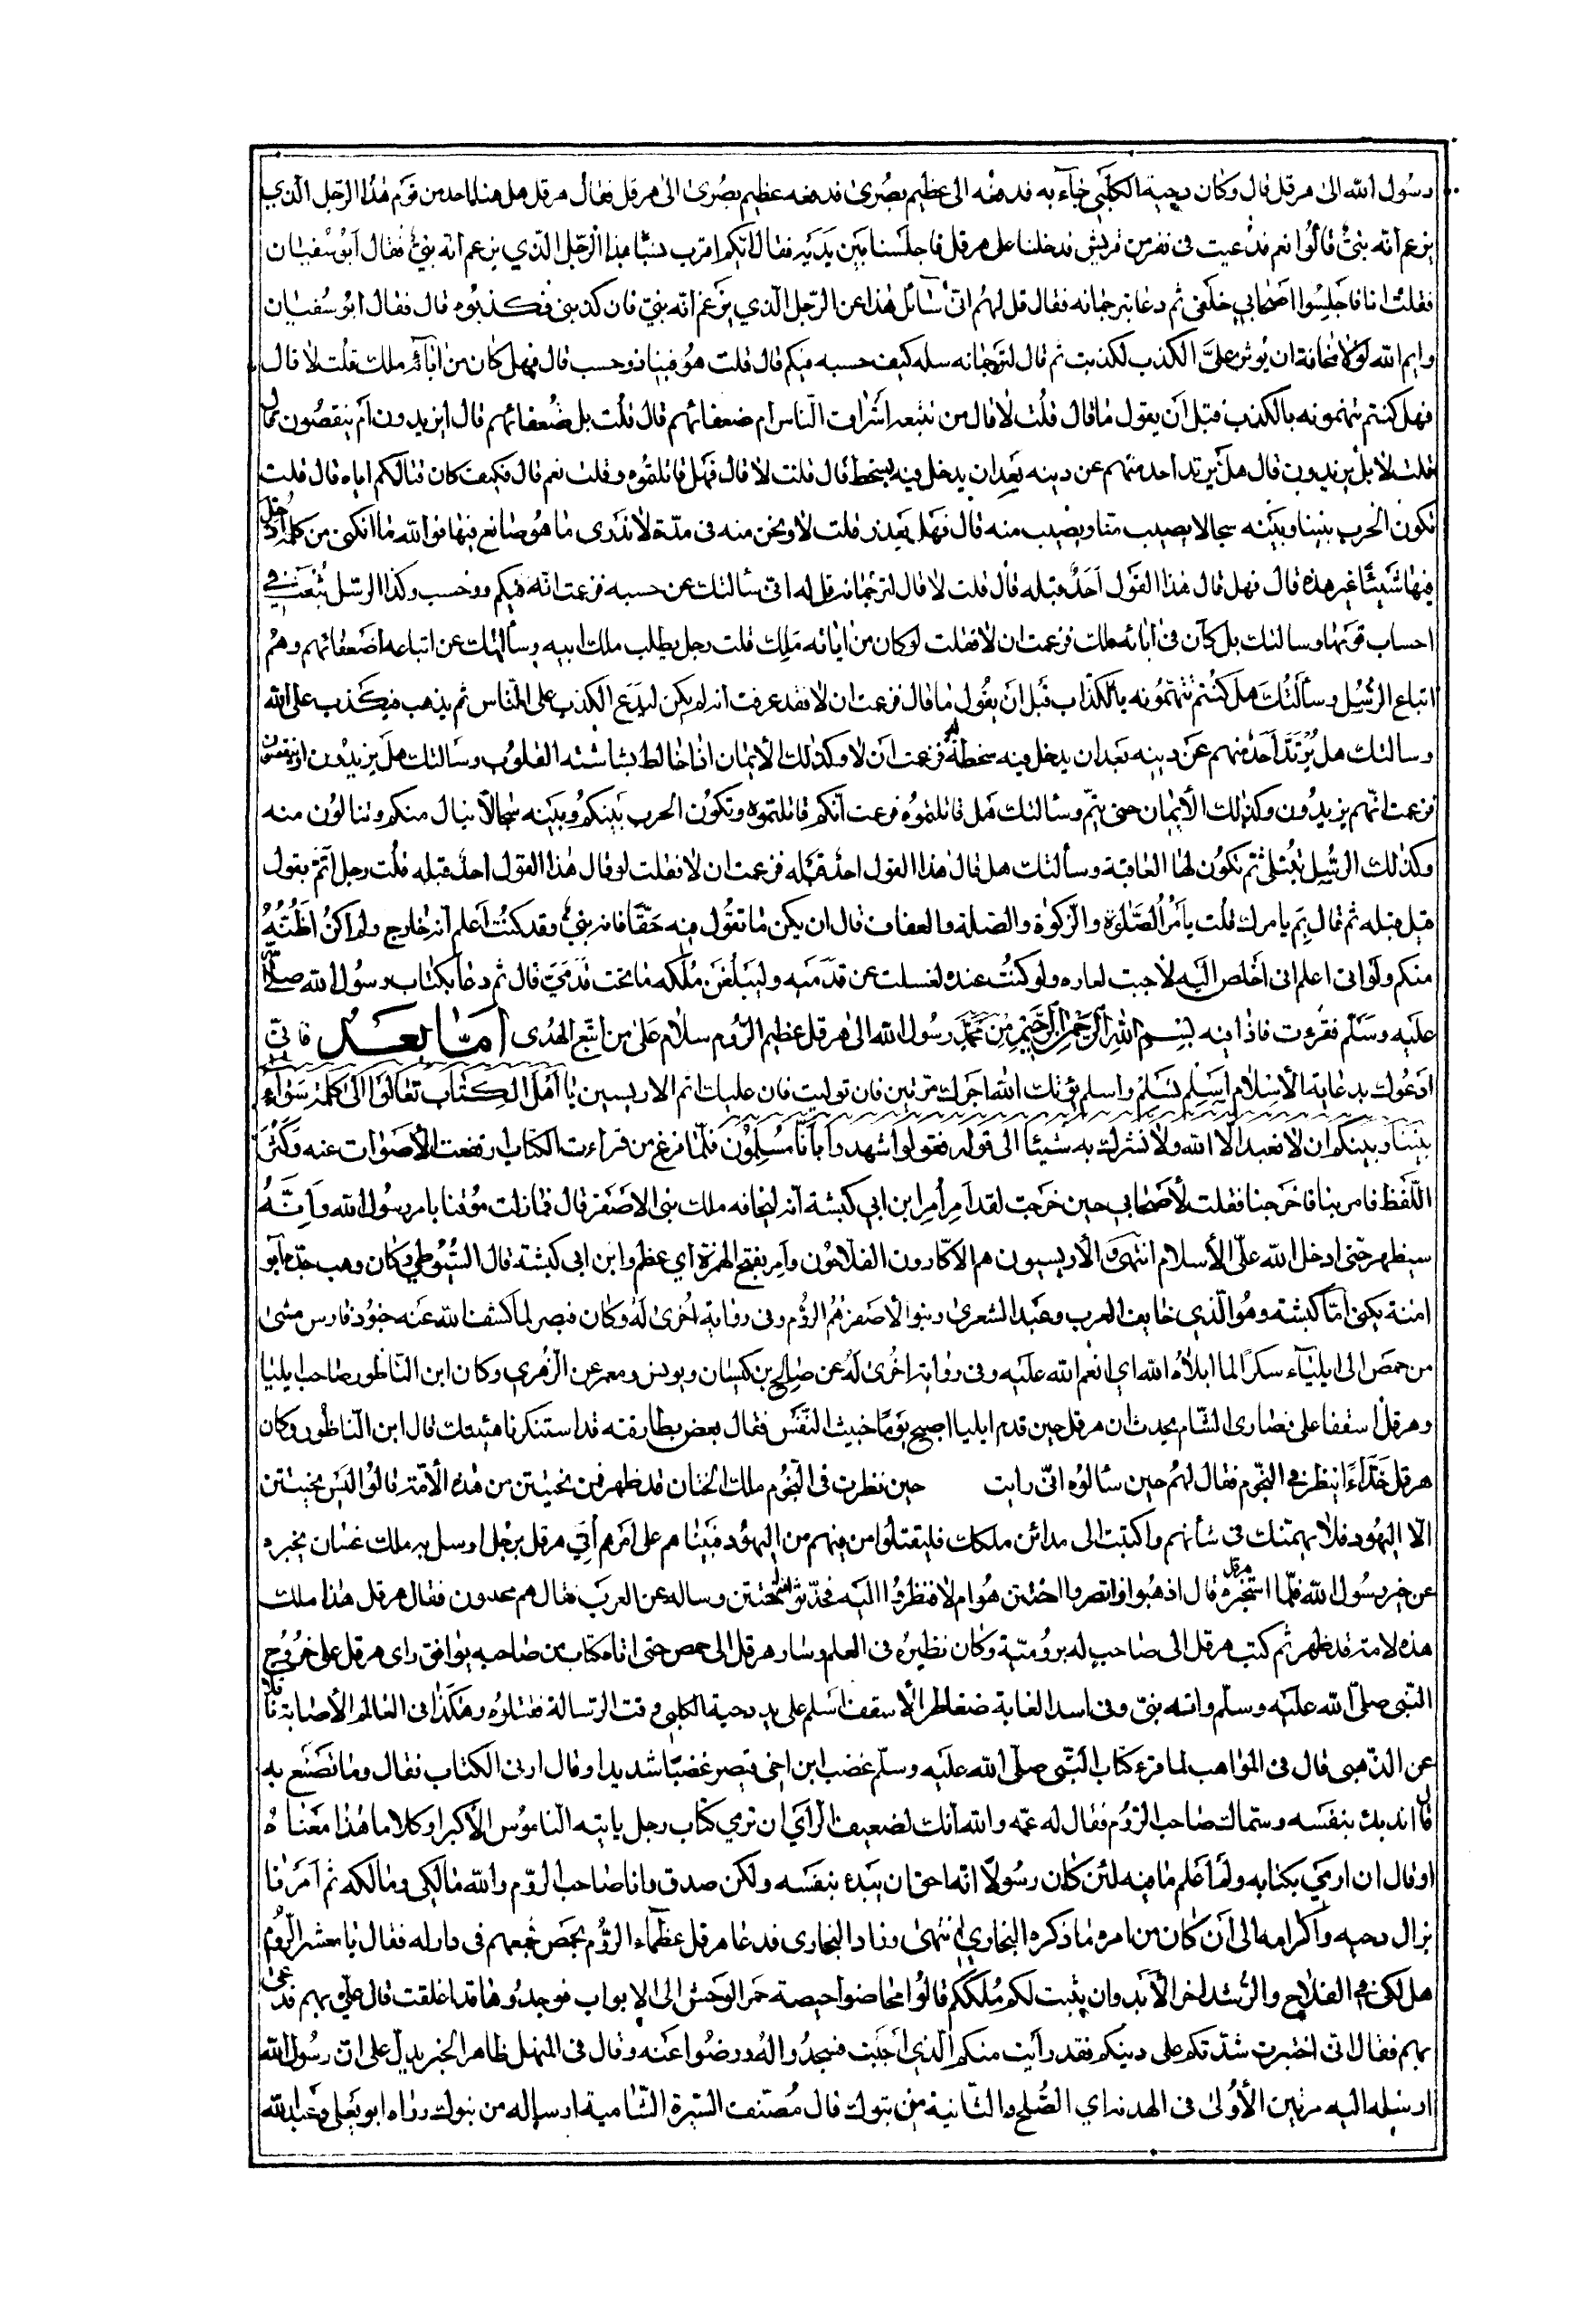 رسول الله الى هرقل قال وكان دحية الكلبي جآء به فدفعه الى عظيم بصرى فدفعه عظيم بصرى الى هرقل فقال هرقل هل هنا احد من قوم هذا الرجل الذي
يزعم انه نبي قالوا نعم فدعيت فى نفر من قريش فدخلنا على هرقل فاجلسنا بين يديه فقال ايكم اقرب نسبا بهذا الرجل الذي يزعم انه نبي فقال ابو سفيان
فقلت انا فاجلسوا اصحابي خلفى ثم دعا بترجمانه فقال قل لهم اني سائل هذا عن الرجل الذي يزعم انه نبي فان كذبنى فكذبوه قال فقال ابو سفيان
وايم الله لولا مخافة ان يؤثر على الكذب لكذبت ثم قال لترجمانه سله كيف حسبه فيكم قال قلت هو فينا ذو حسب قال فهل كان من ابآئه ملك قلت لا قال
فهل كنتم تتهمونه بالكذب قبل ان يقول ما قال قلت لا قال من يتبعه اشراف الناس ام ضعفائهم قال قلت بل ضعفائهم قال ايزيدون ام ينقصون قال
قلت لا بل يزيدون قال هل يرتد احد منهم عن دينه بعد ان يدخل فيه بسخط قال قلت لا قال فهل قاتلتموه وقلت نعم قال فكيف كان قتالكم اياه قال قلت
تكون الحرب بيننا وبينه سجالا يصيب منا ونصيب منه قال فهل يغدر قلت لا ونحن منه فى مدة لا ندرى ما هو صانع فيها فوالله ما امكنى من كلمة ادخل
فيها شيئا غير هذه قال فهل قال هذا القول احد قبله قال قلت لا قال لترجمانه قل له اني سألتك عن حسبه فزعمت انه فيكم ذو حسب وكذا الرسل تبعث في
احساب قومها وسالتك بل كان فى ابائه ملك فزعمت ان لا فقلت لو كان من ابائه ملك قلت رجل يطلب ملك ابيه وسألتك عن اتباعه اضعفائهم وهم
اتباع الرسل وسألتك هل كنتم تتهمونه بالكذاب قبل ان يقول ما قال فزعمت ان لا فقد عرفت انه لم يكن ليدع الكذب على الناس ثم يذهب فيكذب على الله
وسالتك هل يرتد احد منهم عن دينه بعد ان يدخل فيه سخطة له فزعمت ان لا وكذلك الايمان اذا خالط بشاشته القلوب وسالتك هل يزيدون او ينقصون
فزعمت انهم يزيدون وكذلك الايمان حتى يتم وسألتك هل قاتلتموه فزعمت انكم قاتلتموه وتكون الحرب بينكم وبينه سجالا ينال منكم وتنالون منه
وكذلك الرسل تبتلى ثم تكون لها العاقبة وسألتك هل قال هذا القول احد قبله فزعمت ان لا فقلت لو قال هذا القول احد قبله قلت رجل ائتم بقول
قيل قبله ثم قال بم يامرك قلت يامر الصلوة والزكوة والصلة والعفاف قال ان يكن ما تقول فيه حقا فانه نبي وقد كنت اعلم انه خارج ولم اكن اظنه
منكم ولو انى اعلم انى اخلص اليه لاحببت لقاءه ولو كنت عنده لغسلت عن قدميه وليبلغن ملكه ما تحت قدمي قال ثم دعا بكتاب رسول الله صلى
عليه وسلم فقرءت فاذا فيه بسم الله الرحمن الرحيم من محمد رسول الله الى هرقل عظيم الروم سلام على من اتبع الهدى اما بعد فانى
ادعوك بدعاية الاسلام اسلم تسلم واسلم يؤتك الله اجرك مرتين فان توليت فان عليك اثم الاريسيين يا اهل الكتاب تعالوا الى كلمة سواء
بيننا وبينكم ان لا نعبد الا الله ولا نشرك به شيئا الى قوله فقولوا اشهدوا بانا مسلمون فلما فرغ من قراءت الكتاب ارتفعت الاصوات عنه وكثر
اللفظ فامر بنا فاخرجنا فقلت لأصحابي حين خرجت لقد امر امر ابن ابي كبشة انه ليخافه ملك بنى الاصفر قال فما زلت موقنا بامر رسول الله وانه
سيظهر حتى ادخل الله على الاسلام انتهى والاريسيون هم الاكارون الفلاحون وامر بفتح الهمزة اي عظم وابن ابى كبشة قال السيوطي كان وهب جد ابو
امنة يكنى ابا كبشة وهو الذي خالف العرب وعبد الشعرى وبنو الاصفر هم الروم وفى رواية اخرى له وكان قيصر لما كشف الله عنه جنود فارس مشى
من حمص الى ايليآء سكرا لما ابلاه الله اي انعم الله عليه وفى رواية اخرى له عن صالح بن كيسان ويونس ومعمر عن الزهري وكان ابن الناظور صاحب ايليا
وهرقل اسقفا على نصارى الشام يحدث ان هرقل حين قدم ايليا اصبح يوما خبيث النفس فقال بعض بطارقته قد استنكرنا هيئتك قال ابن الناظور وكان
هرقل حذاءا ينظر في النجوم فقال لهم حين سألوه اني رايت حين نظرت فى النجوم ملك الختان قد ظهر فمن يختتن من هذه الامة قالوا ليس يختتن
الا اليهود فلا يهمنك فى شأنهم واكتب الى مدائن ملكك فليقتلوا من فيهم من اليهود فبينا هم على امرهم أتي هرقل برجل ارسل به ملك غسان يخبره
عن خبر رسول الله فلما استخبره هرقل قال اذهبوا فانظروا اختتن هو ام لا فنظروا اليه فحدثوا انه مختتن وساله عن العرب فقال هم محدون فقال هرقل هذا ملك
هذه لامة قد ظهر ثم كتب هرقل الى صاحب له برومية وكان نظيره فى العلم وسار هرقل الى حمص حتى اتاه كتاب من صاحبه يوافق راى هرقل على خروج
النبى صلى الله عليه وسلم وانه نبي وفى اسد الغابة ضغاطر الأسقف اسلم على يد دحية الكلبى وقت الرسالة فقتلوه وهكذا فى العالم الأصابة نا قلا
عن الذهبى قال فى المواهب لما قرء كتاب النبى صلى الله عليه وسلم غضب ابن اخى قيصر غضبا شديدا وقال ارنى الكتاب فقال وما تصنع به
قال انه بدء بنفسه وسماك صاحب الروم فقال له عمه والله انك لضعيف الرأي ان ترمي كتاب رجل ياتيه الناموس الاكبر او كلاما هذا معناه
او قال ان ارمي بكتابه ولم اعلم ما فيه لئن كان رسولا انه احق ان يبدء بنفسه ولكن صدق وانا صاحب الروم والله مالكى ومالكه ثم امرنا
بزال دحيه واكرامه الى أن كان من امره ما ذكره البخاري انتهى وزاد البخارى فدعا هرقل عظمآء الروم بحمص فجمعهم فى دار له فقال يا معشر الروم
هل لكم في الفلاح والرشد اخر الأبد وان يثبت لكم ملككم قالوا فحاضوا حيصة حمر الوحش الى الابواب فوجدوها قد اغلقت قال علي بهم فدعى
بهم فقال انى اختبرت شدتكم على دينكم فقد رأيت منكم الذي احببت فسجدوا له ورضوا عنه وقال فى المنهل ظاهر الخبر يدل على ان رسول الله
ارسله اليه مرتين الأولى فى الهدنة اي الصلح والثانية من تبوك قال مصنف السيرة الشامية ارساله من تبوك رواه ابو يعلى وعبدالله